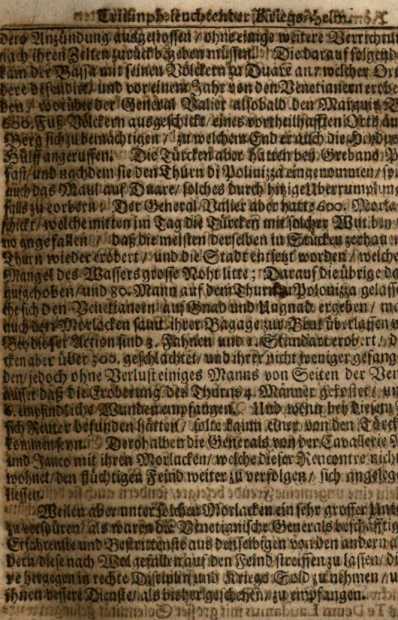 Triumph-leuchtender Kriegs-Helm.
dero Anzündung ausgestossen / ohne einige weitere Verrichtung
nach ihren Zelten zurück begeben müssen. Die darauf folgende
kam der Bassa mit seinen Völckern zu Duare an / welcher Ort
bere defendirt / und vor einem Jahr von den Venetianern erobe
ben / worüber der General Valier alsobald den Marquis
Fuß-Völckern ausgeschickt / eines vortheilhafften Orts
Berg sich zu bemächtigen / zu welchem End er auch die
Hülff angeruffen. Die Türcken aber hatten bey Grebano P
fast / und nachdem sie den Thurn di Polinizza eingenommen /
auch das Maul auf Duare / solches durch hitzige Uberrumplung
falls zu erobern. Der General Valier aber hatte 600. Morla
schickt / welche mitten im Tag die Türcken mit solcher Wut
no angefallen / daß die meisten derselben in Stücken zerhauen
Thurn wieder erobert / und die Stadt entsetzt worden / welche
Mangel des Wassers grosse Noht litte; Darauf die übrige
aufgehoben / und 80. Mann auf dem Thurn Polonizza gelasse
che sich den Venetianern auf Gnad und Ungnad ergeben /
auch den Morlacken samt ihrer Bagage zur Beut überlassen
Bey dieser Action sind 3. Fahnen und 1. Standart erobert /
cken aber über 300. geschlachtet / und ihrer nicht weniger gefang
den / jedoch ohne Verlust einiges Manns von Seiten der Ven
ausser daß die Eroberung des Thurns 4. Männer gekostet /
6. empfindliche Wunden empfangen. Und wenn bey diesem
sich Reuter befunden hätten / solte kaum einer von den Türck
kommen seyn. Derohalben die Generals von der Cavallerie
und Janco mit ihren Morlacken / welche dieser Rencontre nicht
wohnet / den flüchtigen Feind weiter zu verfolgen / sich angelege
liessen.
Weilen aber unter solchen Morlacken ein sehr grosser
zu verspüren / als waren die Venetianische Generals beschäfftig
Erfahrenste und Bestrittenste aus denselbigen von den andern
dern / diese nach Wolgefallen auf den Feind streiffen zu lassen /
ne hergegen in rechte Disciplin und Kriegs-Sold zu nehmen /
ihnen bessere Dienste / als bisher geschehen / zu empfangen.